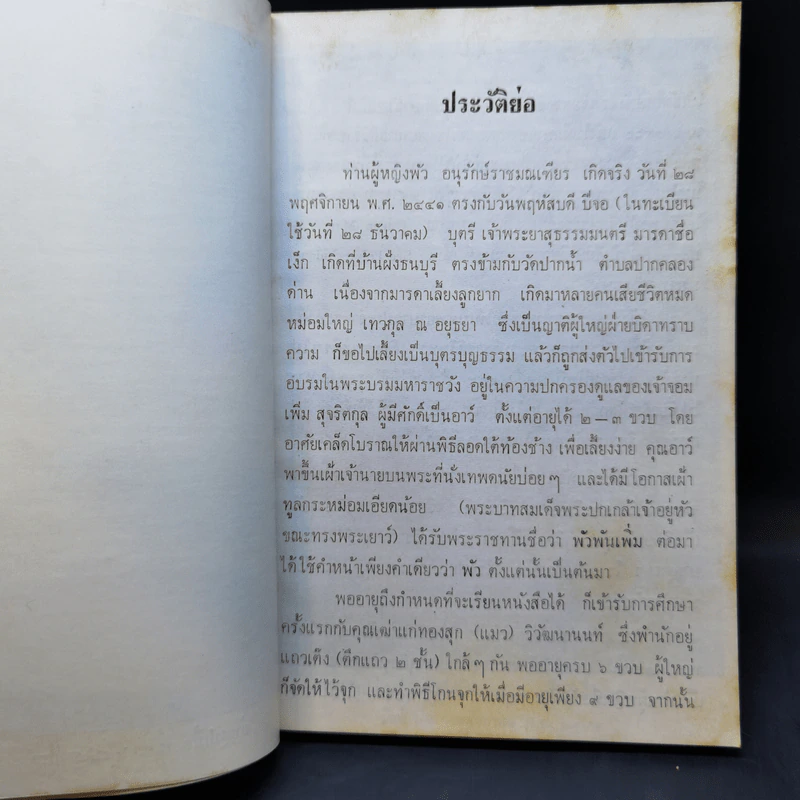 ประวัติย่อ
ท่านผู้หญิงพัว อนุรักษ์ราชมณเฑียร เกิดจริง วันที่ ๒๘
พฤศจิกายน พ.ศ. ๒๔๔๑ ตรงกับวันพฤหัสบดี ปีจอ (ในทะเบียน
ใช้วันที่ ๒๘ ธันวาคม) บุตรี เจ้าพระยาสุธรรมมนตรี มารดาชื่อ
เง็ก เกิดที่บ้านฝั่งธนบุรี ตรงข้ามกับวัดปากน้ำ ตำบลปากคลอง
ด่าน เนื่องจากมารดาเลี้ยงลูกยาก เกิดมาหลายคนเสียชีวิตหมด
หม่อมใหญ่ เทวกุล ณ อยุธยา ซึ่งเป็นญาติผู้ใหญ่ฝ่ายบิดาทราบ
ความ ก็ขอไปเลี้ยงเป็นบุตรบุญธรรม แล้วก็ถูกส่งตัวไปเข้ารับการ
อบรมในพระบรมมหาราชวัง อยู่ในความปกครองดูแลของเจ้าจอม
เพิ่ม สุจริตกุล ผู้มีศักดิ์เป็นอาว์ ตั้งแต่อายุได้ ๒ – ๓ ขวบ โดย
อาศัยเคล็ดโบราณให้ผ่านพิธีลอดใต้ท้องช้าง เพื่อเลี้ยงง่าย คุณอาว์
พาขึ้นเฝ้าเจ้านายบนพระที่นั่งเทพดนัยบ่อยๆ และได้มีโอกาสเฝ้า
ทูลกระหม่อมเอียดน้อย (พระบาทสมเด็จพระปกเกล้าเจ้าอยู่หัว
ขณะทรงพระเยาว์) ได้รับพระราชทานชื่อว่า พัวพันเพิ่ม ต่อมา
ได้ใช้คำหน้าเพียงคำเดียวว่า พัว ตั้งแต่นั้นเป็นต้นมา
พออายุถึงกำหนดที่จะเรียนหนังสือได้ ก็เข้ารับการศึกษา
ครั้งแรกกับคุณเฒ่าแก่ทองสุก (แมว) วิวัฒนานนท์ ซึ่งพำนักอยู่
แถวเต๊ง (ตึกแถว ๒ ชั้น) ใกล้ๆ กัน พออายุครบ ๖ ขวบ ผู้ใหญ่
ก็จัดให้ไว้จุก และทำพิธีโกนจุกให้เมื่อมีอายุเพียง ๙ ขวบ จากนั้น